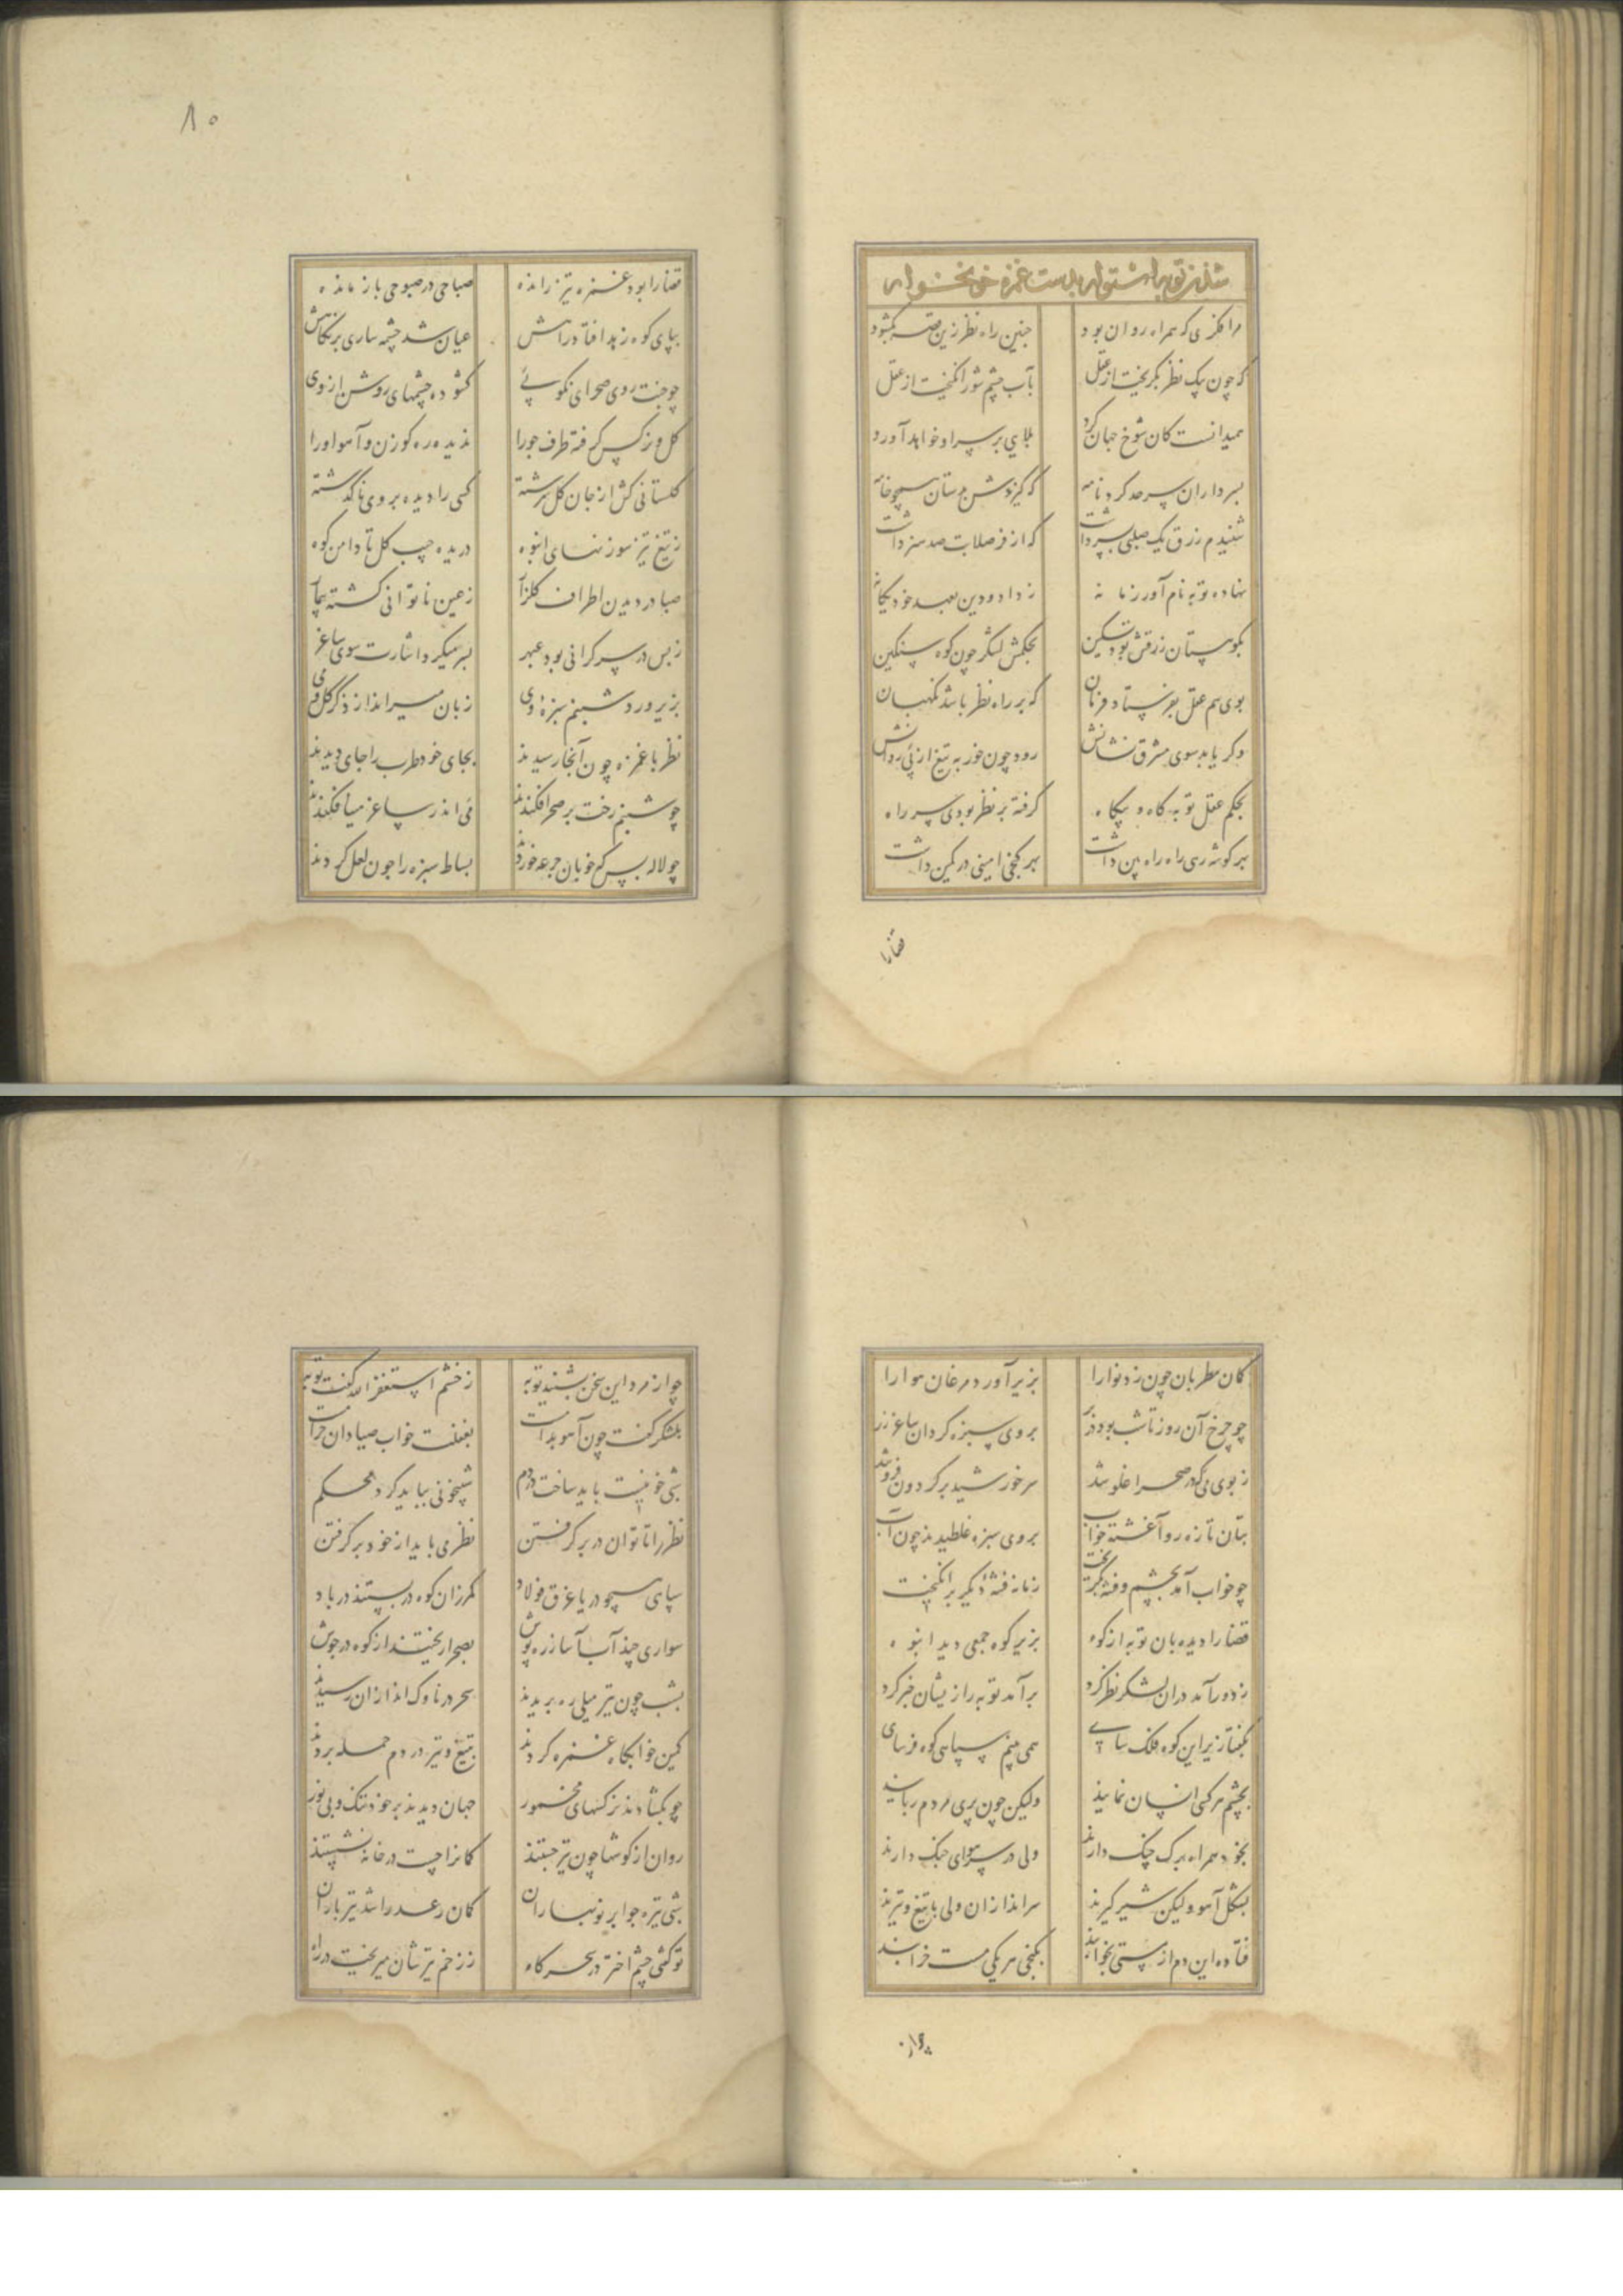 شدن توبه استوار بدست غمزه خونخوار
مرا فکری که همراه روان بود چنین راه نظر زین قصه بگشود
که چون پیک نظر بگریخت از عقل بآب چشم شور انگیخت از عقل
همیدانست کان شوخ جهان کرد بلایی بر سر او خواهد آورد
بسرداران سرحد کرد نامه که گیرندش بدستان همچو خامه
شنیدم رزق یک صلبی سپر داشت که از فرصلابت صد هنر داشت
نهاده توبه نام آور زمانه ز داد و دین بعهد خود یگانه
بکوهستان زرقش بود تسکین بجنگش لشگر چون کوه سنگین
بوی هم عقل بفرستاد فرمان که بر راه نظر باشد نگهبان
وگر یابد سوی مشرق نشانش رود چون خور به تیغ از پی روانش
بحکم عقل توبه گاه و بیگاه گرفته بر نظر بودی سر راه
بهر گوشه رهی را راه بین داشت بهر کنجی امینی در کمین داشت
قضا را
۸۰
قضا را بود غمزه تیز رانده صباحی در صبوحی باز مانده
بپای کوه زهد افتاد راهش عیان شد چشمه ساری بر نگاهش
چو جنت روی صحرای نکوپی گشوده چشمهای روشن از وی
گل و نرگس گرفته طرف جو را ندیده ره گوزن و آهو او را
گلستانی گلش از جان سرشته کسی را دیده بر وی ناگذشته
ز تیغ تیز سوزنهای انبوه دریده جیب گل تا دامن کوه
صبا در دیدن اطراف گلزار ز عین ناتوانی گشته بیمار
ز بس در سر گرانی بود عبهر بسر میکرد اشارت سوی ساغر
بزیر ورد شبنم سبزه وی زبان میراند از ذکر گل و می
نظر با غمزه چون آنجا رسیدند بجای خود طرب را جای دیدند
چو شبنم رخت بر صحرا فکندند می اندر ساغر مینا فکندند
چو لاله بس که خوبان جرعه خوردند بساط سبزه را چون لعل کردند
کمان مطربان چون زد نوا را بزیر آورد مرغان هوا را
چو چرخ آن روز تا شب بود در بروی سبزه گردان ساغر زر
ز بوی می که در صحرا غلو شد سر خورشید بر گردون فرو شد
بتان تازه رو آغشته خواب بروی سبزه غلطیدند چون آب
چو خواب آمد بچشم و فتنه بگریخت زمانه فتنه دیگر برانگیخت
قضا را دیده بان توبه از کوه بزیر کوه جمعی دید انبوه
ز دور آمد در آن لشکر نظر کرد برآمد توبه را زیشان خبر کرد
بگفتا زیر این کوه فلک سای همی بینم سپاهی کوه فرسای
بچشم هر کسی انسان نمایند ولیکن چون پری مردم ربایند
بخود همراه برگ چنگ دارند ولی در سر هوای جنگ دارند
بشکل آهو ولیکن شیر گیرند سراندازان ولی با تیغ و تیرند
فتاده این دم از مستی بخوابند بکنجی هر یکی مست خرابند
چو از
چو از مرد این سخن بشنید توبه ز خشم استغفر الله گفت توبه
بلشکر گفت چون آهو بدامست بغفلت خواب صیادان حرامست
شبی خونیست باید ساخت در دم شبیخونی بباید کرد محکم
نظر را تا توان در بر گرفتن نظر می باید از خود برگرفتن
سپاهی همچو دریا غرق فولاد کمر زان کوه دربستند در باد
سواری چند آب آسا زره پوش بصحرا ریختند از کوه در جوش
بشب چون تیر میلی ره بریدند سحر در ناوک اندازان رسیدند
کمین خوابگاه غمزه کردند بتیغ و تیر در دم حمله بردند
چو بگشادند نرگسهای مخمور جهان دیدند بر خود تنگ و بی نور
روان از گوشها چون تیر جستند کمانرا چست در خانه نشستند
شبی تیره چو ابر نوبهاران کمان رعد را شد تیرباران
تو گفتی چشم اختر در سحرگاه ز زخم تیرشان میریخت در راه